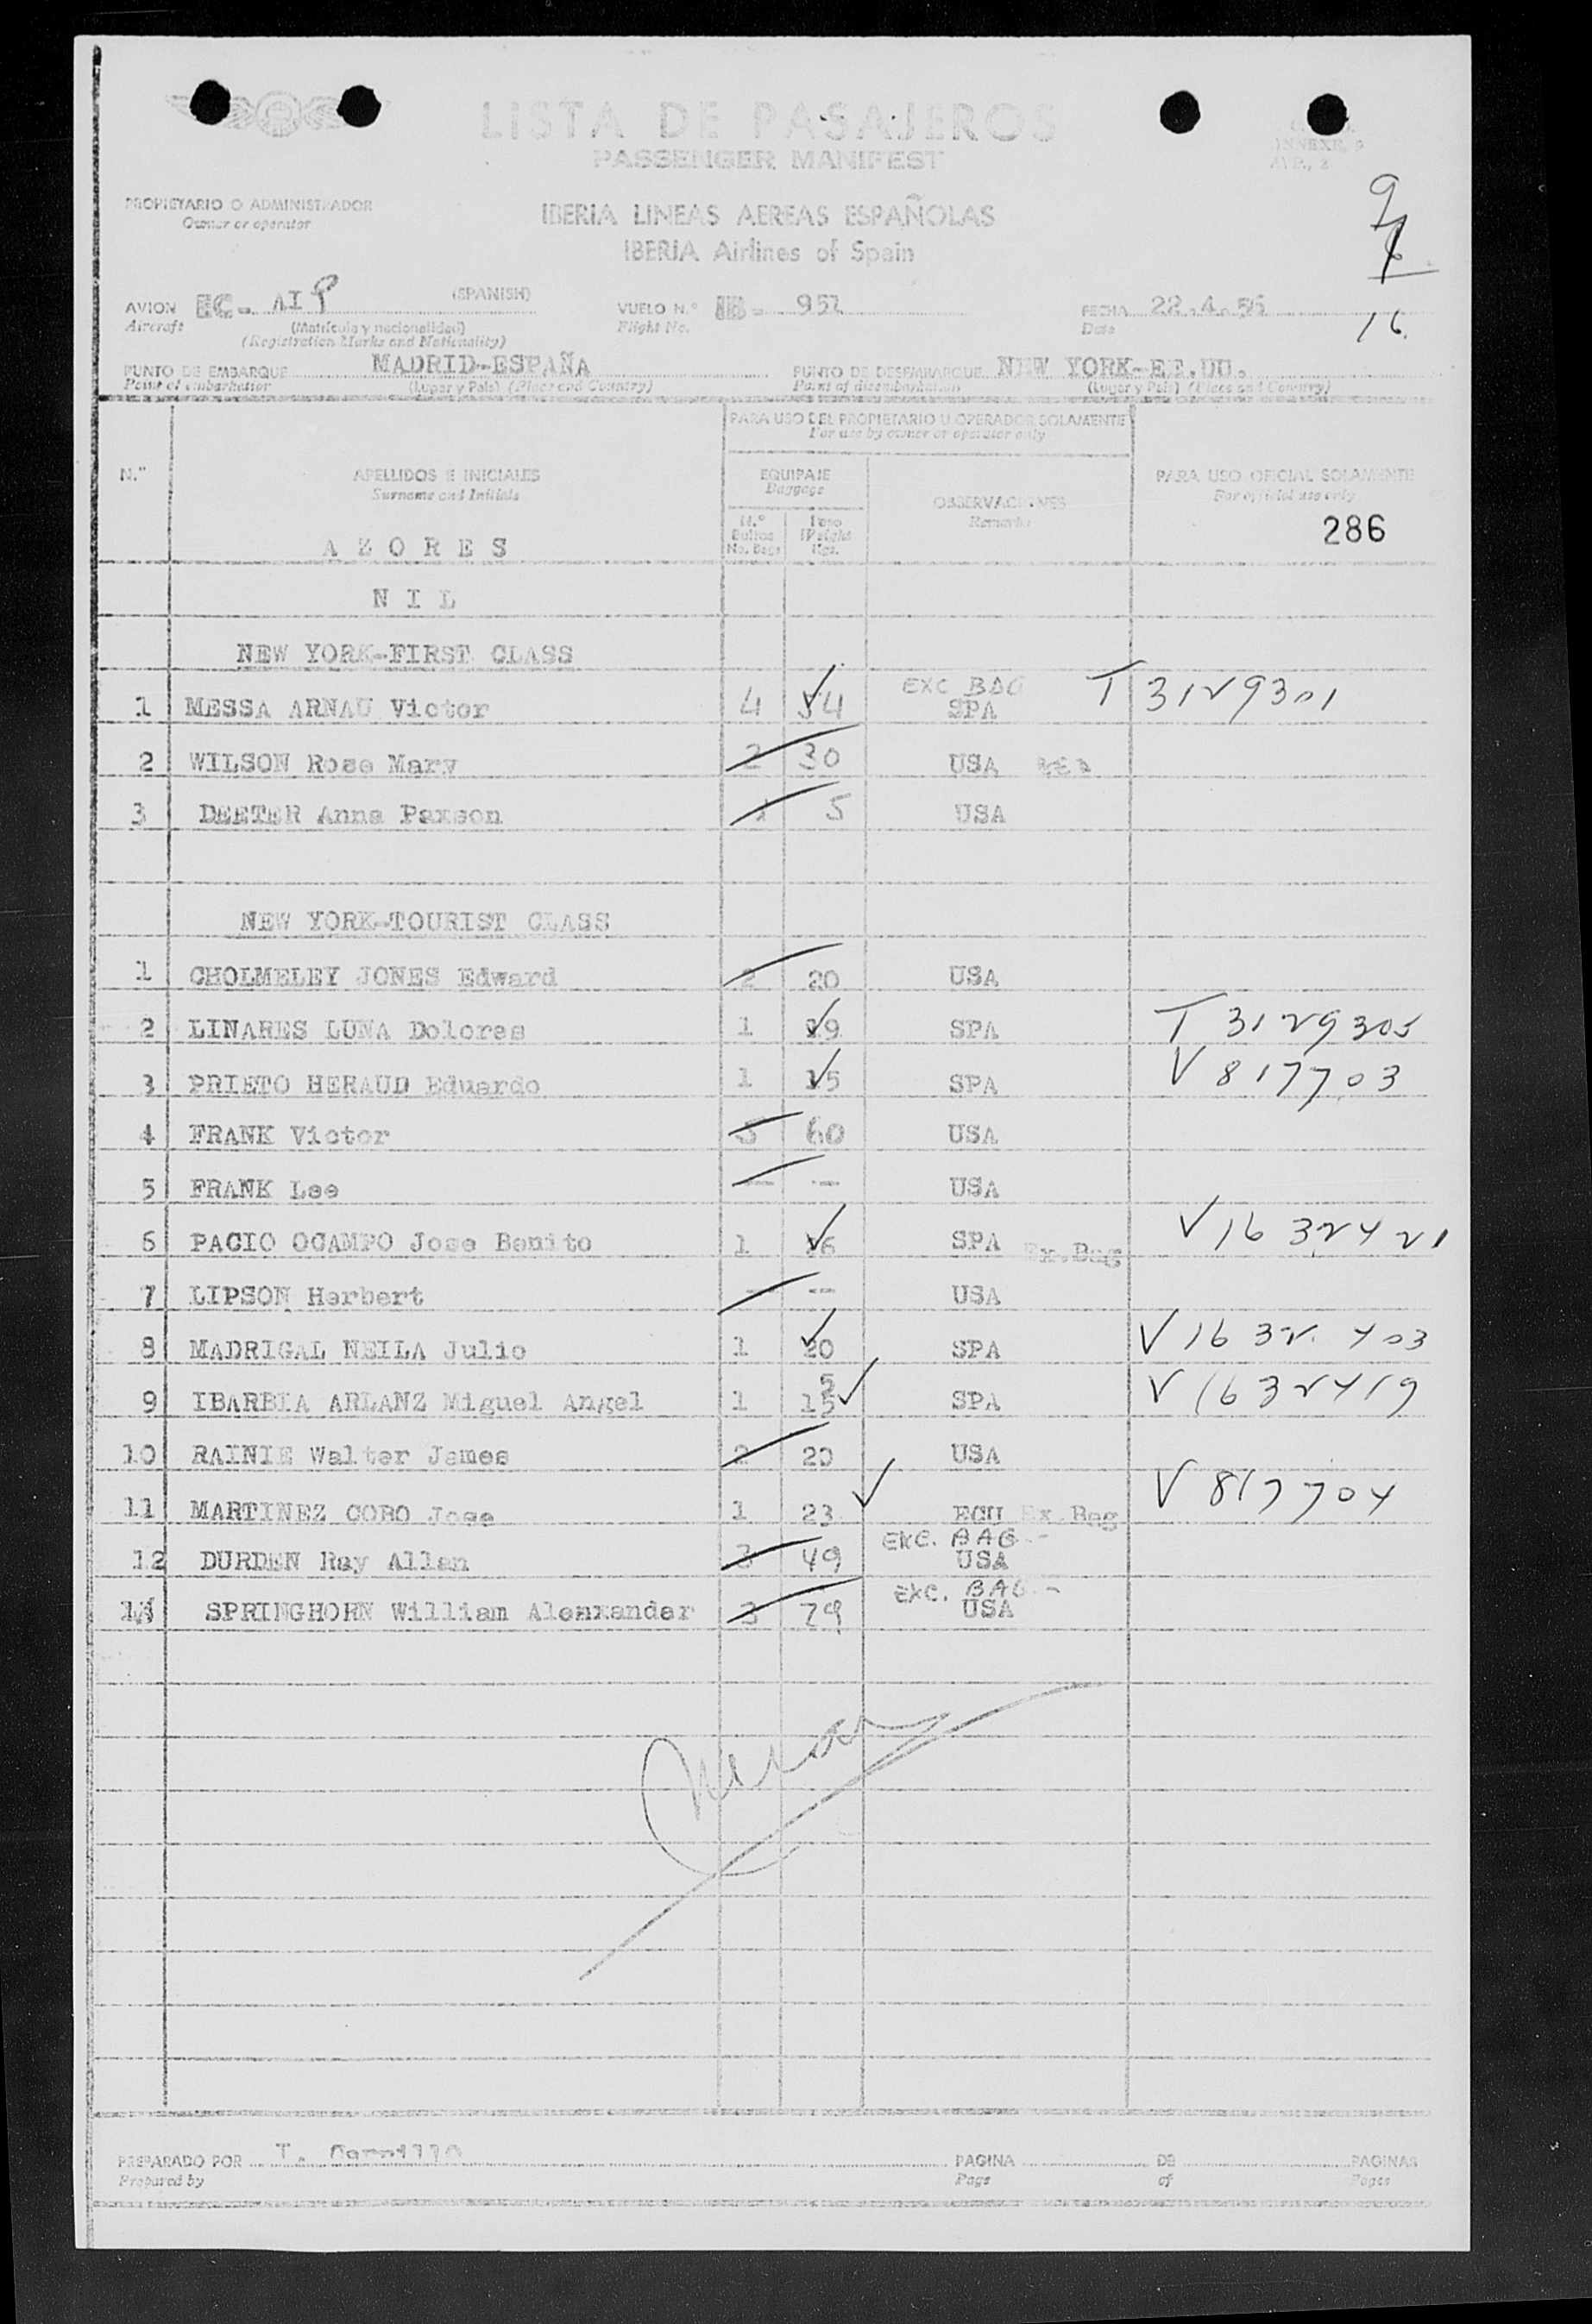 LISTA DE PASAJEROS
PASSENGER MANIFEST
ANNEXE, 9
PROPIETARIO O ADMINISTRADOR
Owner or operator
IBERIA LINEAS AEREAS ESPAÑOLAS
IBERIA Airlines of Spain
9
16
AVION EC- AIP (SPANISH)
Aircraft (Matrícula y nacionalidad)
(Registration Marks and Nationality)
VUELO N.° IB- 952
Flight No.
FECHA 22.4.56
Date
PUNTO DE EMBARQUE MADRID-ESPAÑA
Point of embarkation (Lugar y País) (Place and Country)
PUNTO DE DESEMBARQUE NEW YORK-EE.UU.
Point of disembarkation (Lugar y País) (Place and Country)
PARA USO DEL PROPIETARIO U OPERADOR SOLAMENTE
For use by owner or operator only
N.° APELLIDOS E INICIALES EQUIPAJE OBSERVACIONES PARA USO OFICIAL SOLAMENTE
Surname and Initials Baggage Remarks For official use only
N.° Bultos Peso
No. Bags Weight Kgs.
286
AZORES
NIL
NEW YORK-FIRST CLASS
1 MESSA ARNAU Victor 4 54 EXC BAG SPA T 3129301
2 WILSON Rose Mary 2 30 USA
3 DEETER Anna Paxson 1 5 USA
NEW YORK-TOURIST CLASS
1 CHOLMELEY JONES Edward 2 20 USA
2 LINARES LUNA Dolores 1 19 SPA T 3129305
3 PRIETO HERAUD Eduardo 1 15 SPA V 817703
4 FRANK Victor 5 60 USA
5 FRANK Lee — — USA
6 PACIO OCAMPO Jose Benito 1 26 SPA Ex.Bag V 1632421
7 LIPSON Herbert — -- USA
8 MADRIGAL NEILA Julio 1 20 SPA V 1632403
9 IBARBIA ARLANZ Miguel Angel 1 15 5 SPA V 1632419
10 RAINIE Walter James 2 20 USA
11 MARTINEZ COBO Jose 1 23 ECU Ex.Bag V 817704
12 DURDEN Ray Allen 3 49 EXC. BAG - USA
13 SPRINGHORN William Aleaxander 3 29 EXC. BAG - USA
PREPARADO POR T. Carrillo
Prepared by
PAGINA DE PAGINAS
Page of Pages